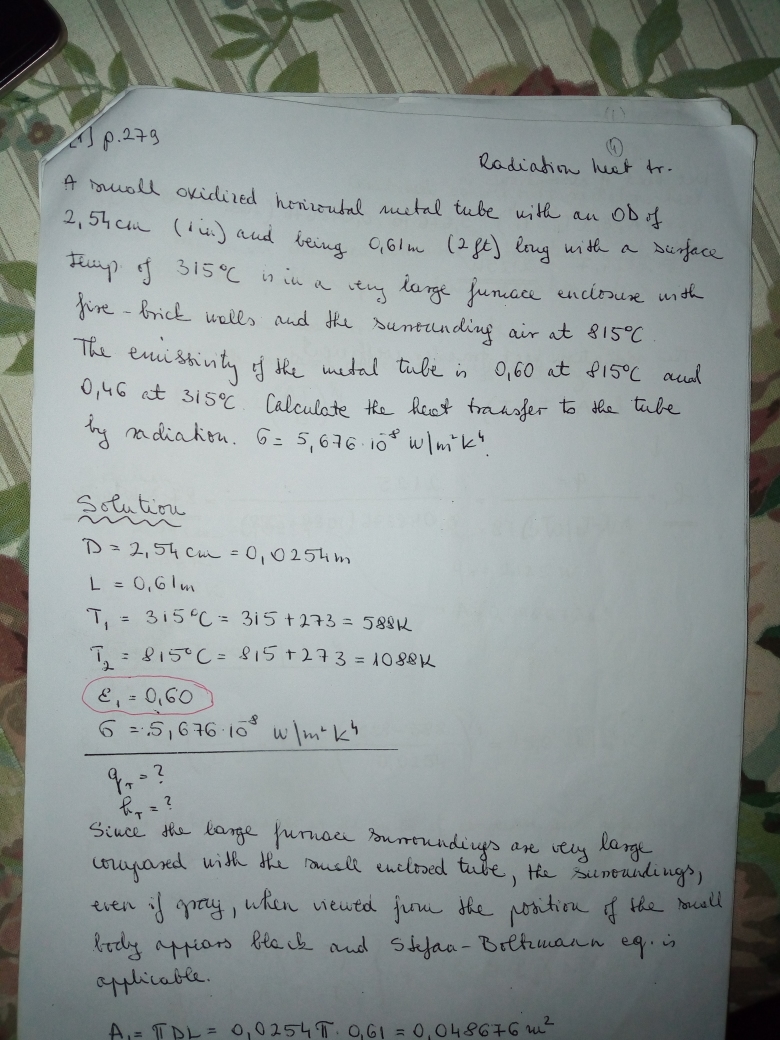 [1] p.279
(4)
Radiation heat tr.
A small oxidized horizontal metal tube with an OD of
2,54cm (1in) and being 0,61m (2ft) long with a surface
temp of 315°C is in a very large furnace enclosure with
fire-brick walls and the surrounding air at 815°C.
The emissivity of the metal tube is 0,60 at 815°C and
0,46 at 315°C. Calculate the heat transfer to the tube
by radiation. σ = 5,676·10⁻⁸ W/m²K⁴.
Solution
D = 2,54cm = 0,0254m
L = 0,61m
T₁ = 315°C = 315+273 = 588K
T₂ = 815°C = 815+273 = 1088K
ε₁ = 0,60
σ = 5,676·10⁻⁸ W/m²K⁴
qᵣ = ?
hᵣ = ?
Since the large furnace surroundings are very large
compared with the small enclosed tube, the surroundings,
even if gray, when viewed from the position of the small
body appiars black and Stefan-Boltzmann eq. is
applicable.
A₁ = πDL = 0,0254π·0,61 = 0,048676m²